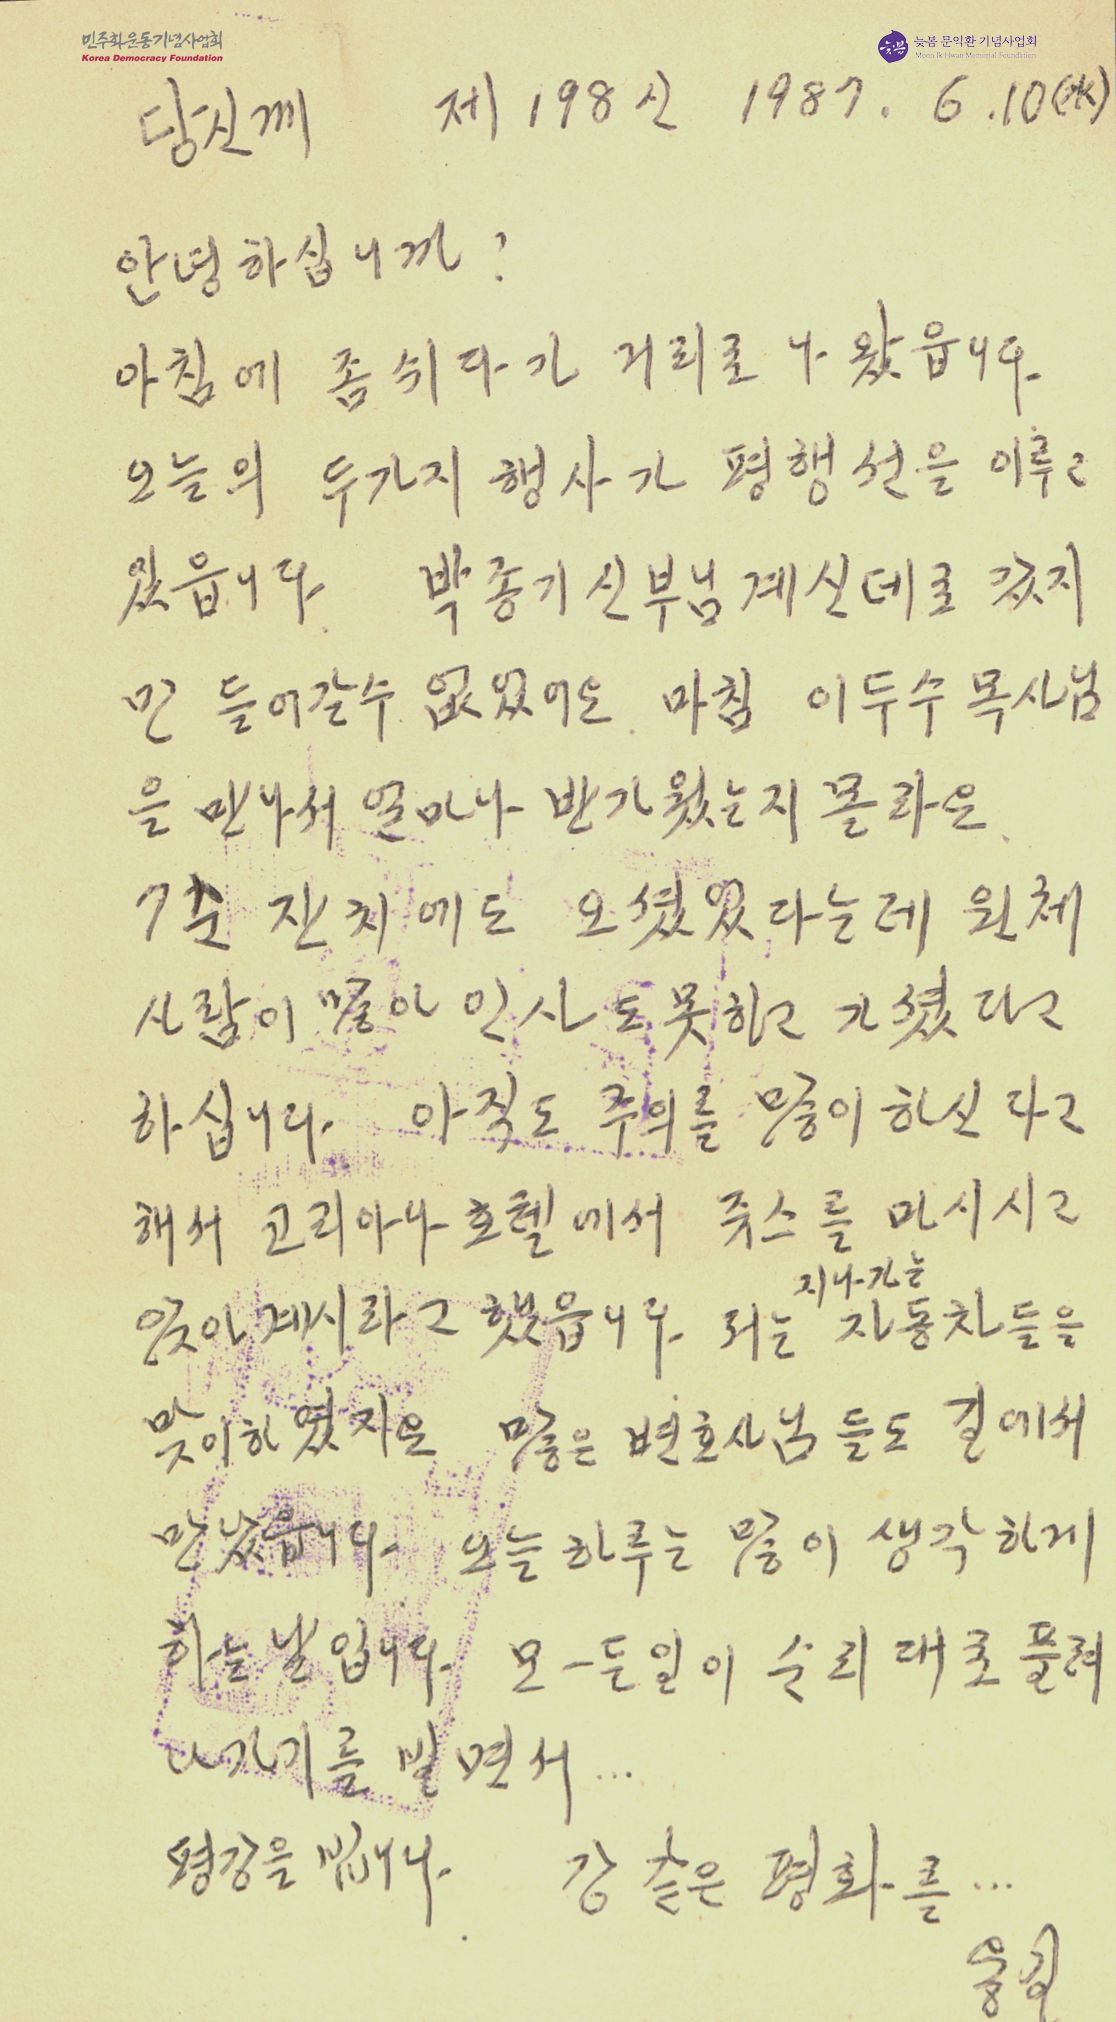 민주화운동기념사업회
Korea Democracy Foundation
늦봄
늦봄 문익환 기념사업회
Moon Ik Hwan Memorial Foundation
당신께 제198신 1987. 6.10(水)
안녕하십니까?
아침에 좀 쉬다가 거리로 나왔읍니다.
오늘의 두가지 행사가 평행선을 이루고
있읍니다. 박종기 신부님 계신데로 갔지
만 들어갈수 없었어요. 마침 이두수 목사님
을 만나서 얼마나 반가웠는지 몰라요.
7순 잔치에도 오셨었다는데 원체
사람이 많아 인사도 못하고 가셨다고
하십니다. 아직도 주의를 많이 하신다고
해서 코리아나 호텔에서 쥬스를 마시시고
앉아 계시라고 했읍니다. 저는 자동차들을
지나가는
맞이하였지요 많은 변호사님들도 길에서
만났읍니다. 오늘 하루는 많이 생각하게
하는 날입니다. 모-든 일이 순리대로 풀려
나가기를 빌면서...
평강을 빕니다. 강 같은 평화를...
용길